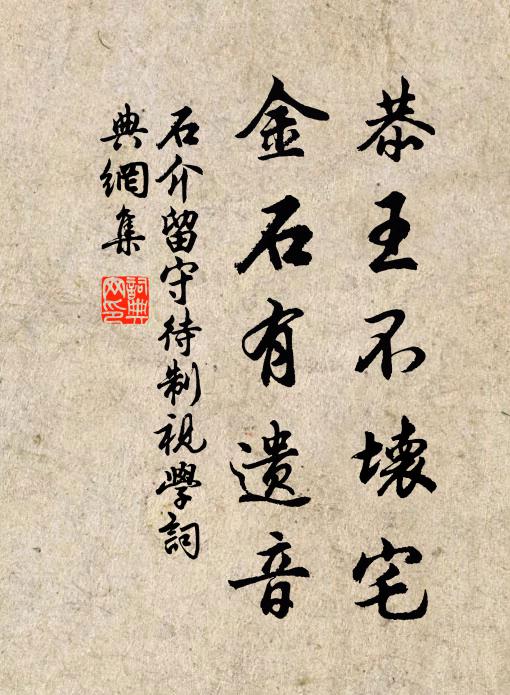 恭王不壞宅
金石有遺音
石介留守待制視學詞
典網集
詞典
网印